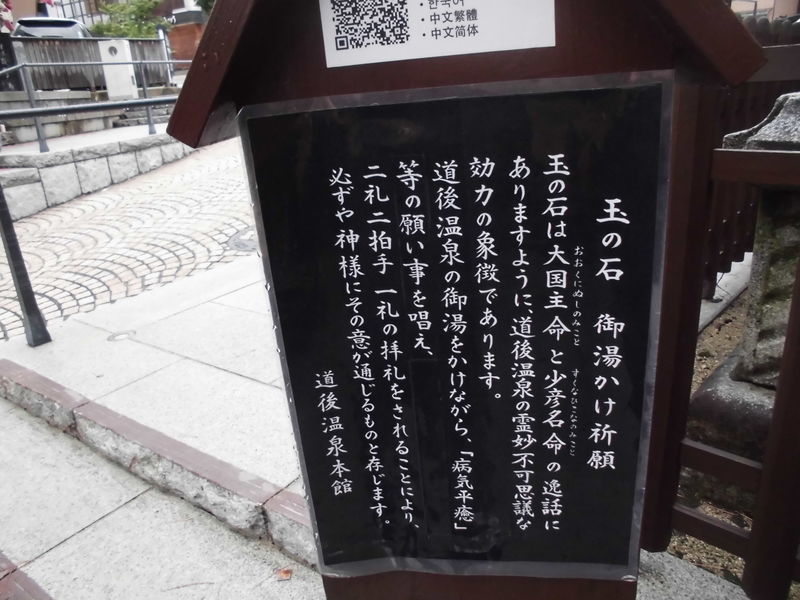 ・한국어
・中文繁體
・中文简体
玉の石　御湯かけ祈願
玉の石は大国主命と少彦名命の逸話に
おおくにぬしのみこと
すくなひこなのみこと
ありますように、道後温泉の霊妙不可思議な
効力の象徴であります。
道後温泉の御湯をかけながら、「病気平癒」
等の願い事を唱え、
二礼二拍手一礼の拝礼をされることにより、
必ずや神様にその意が通じるものと存じます。
道後温泉本館